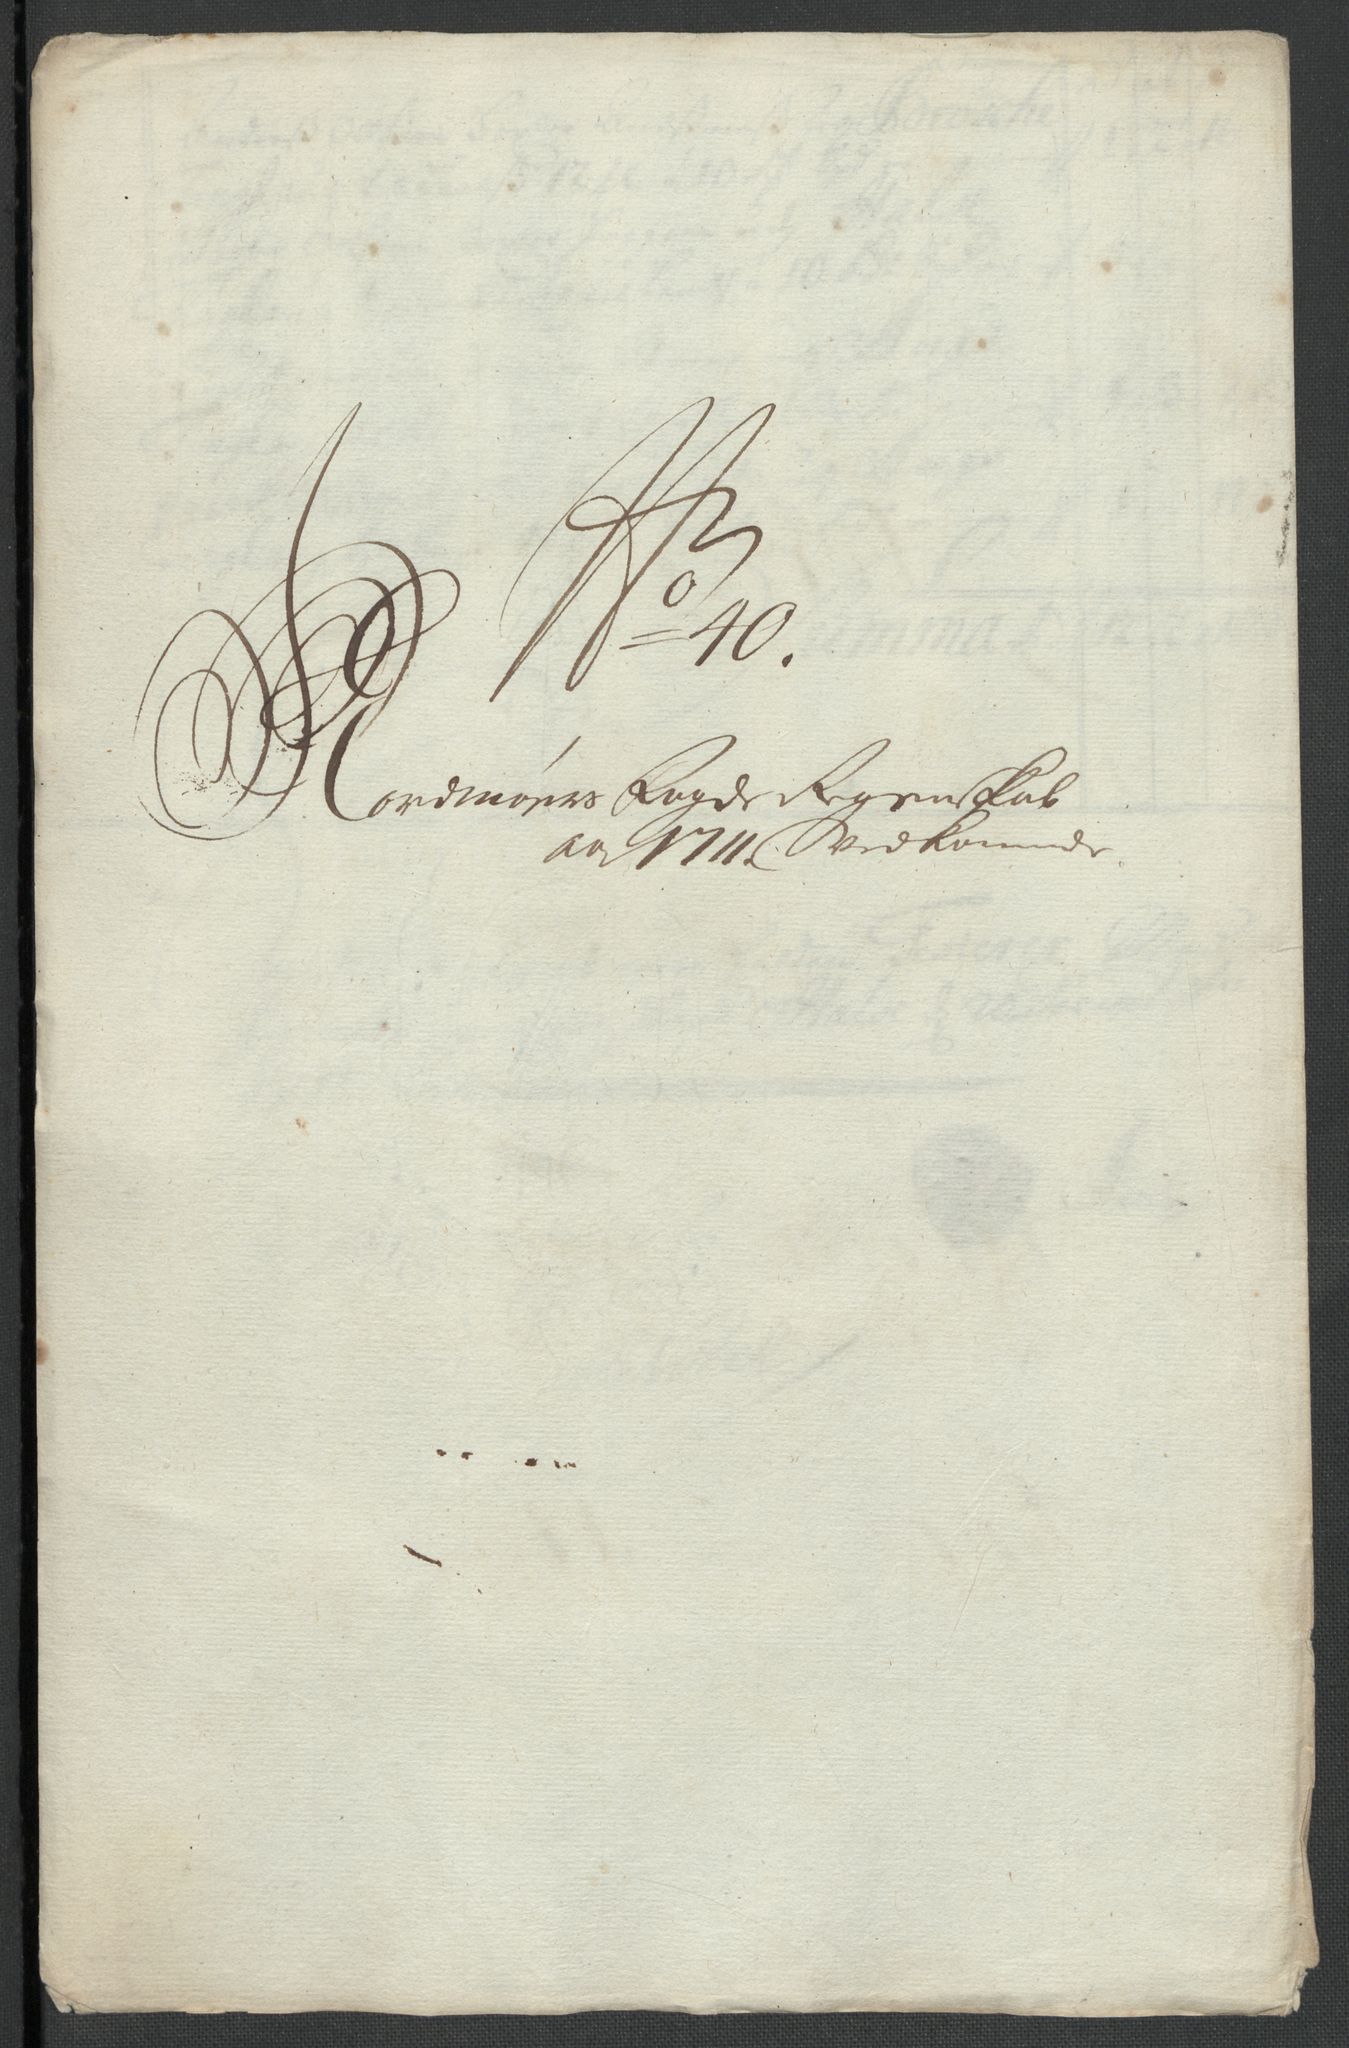 No
40.
Nordmøers Fogde Regenskab
ao 1711. Vedkommende.